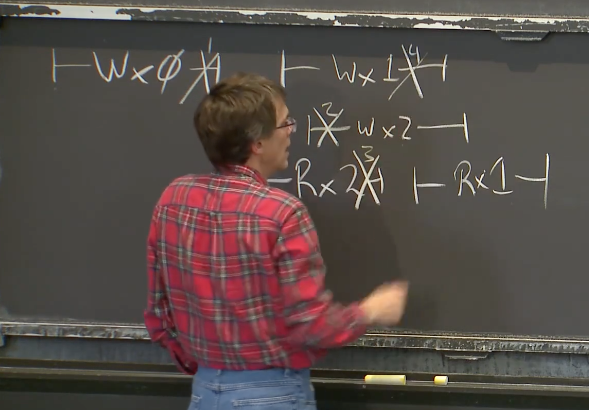 Wxø 1 Wx1 4
2 Wx2
Rx2 3 Rx1